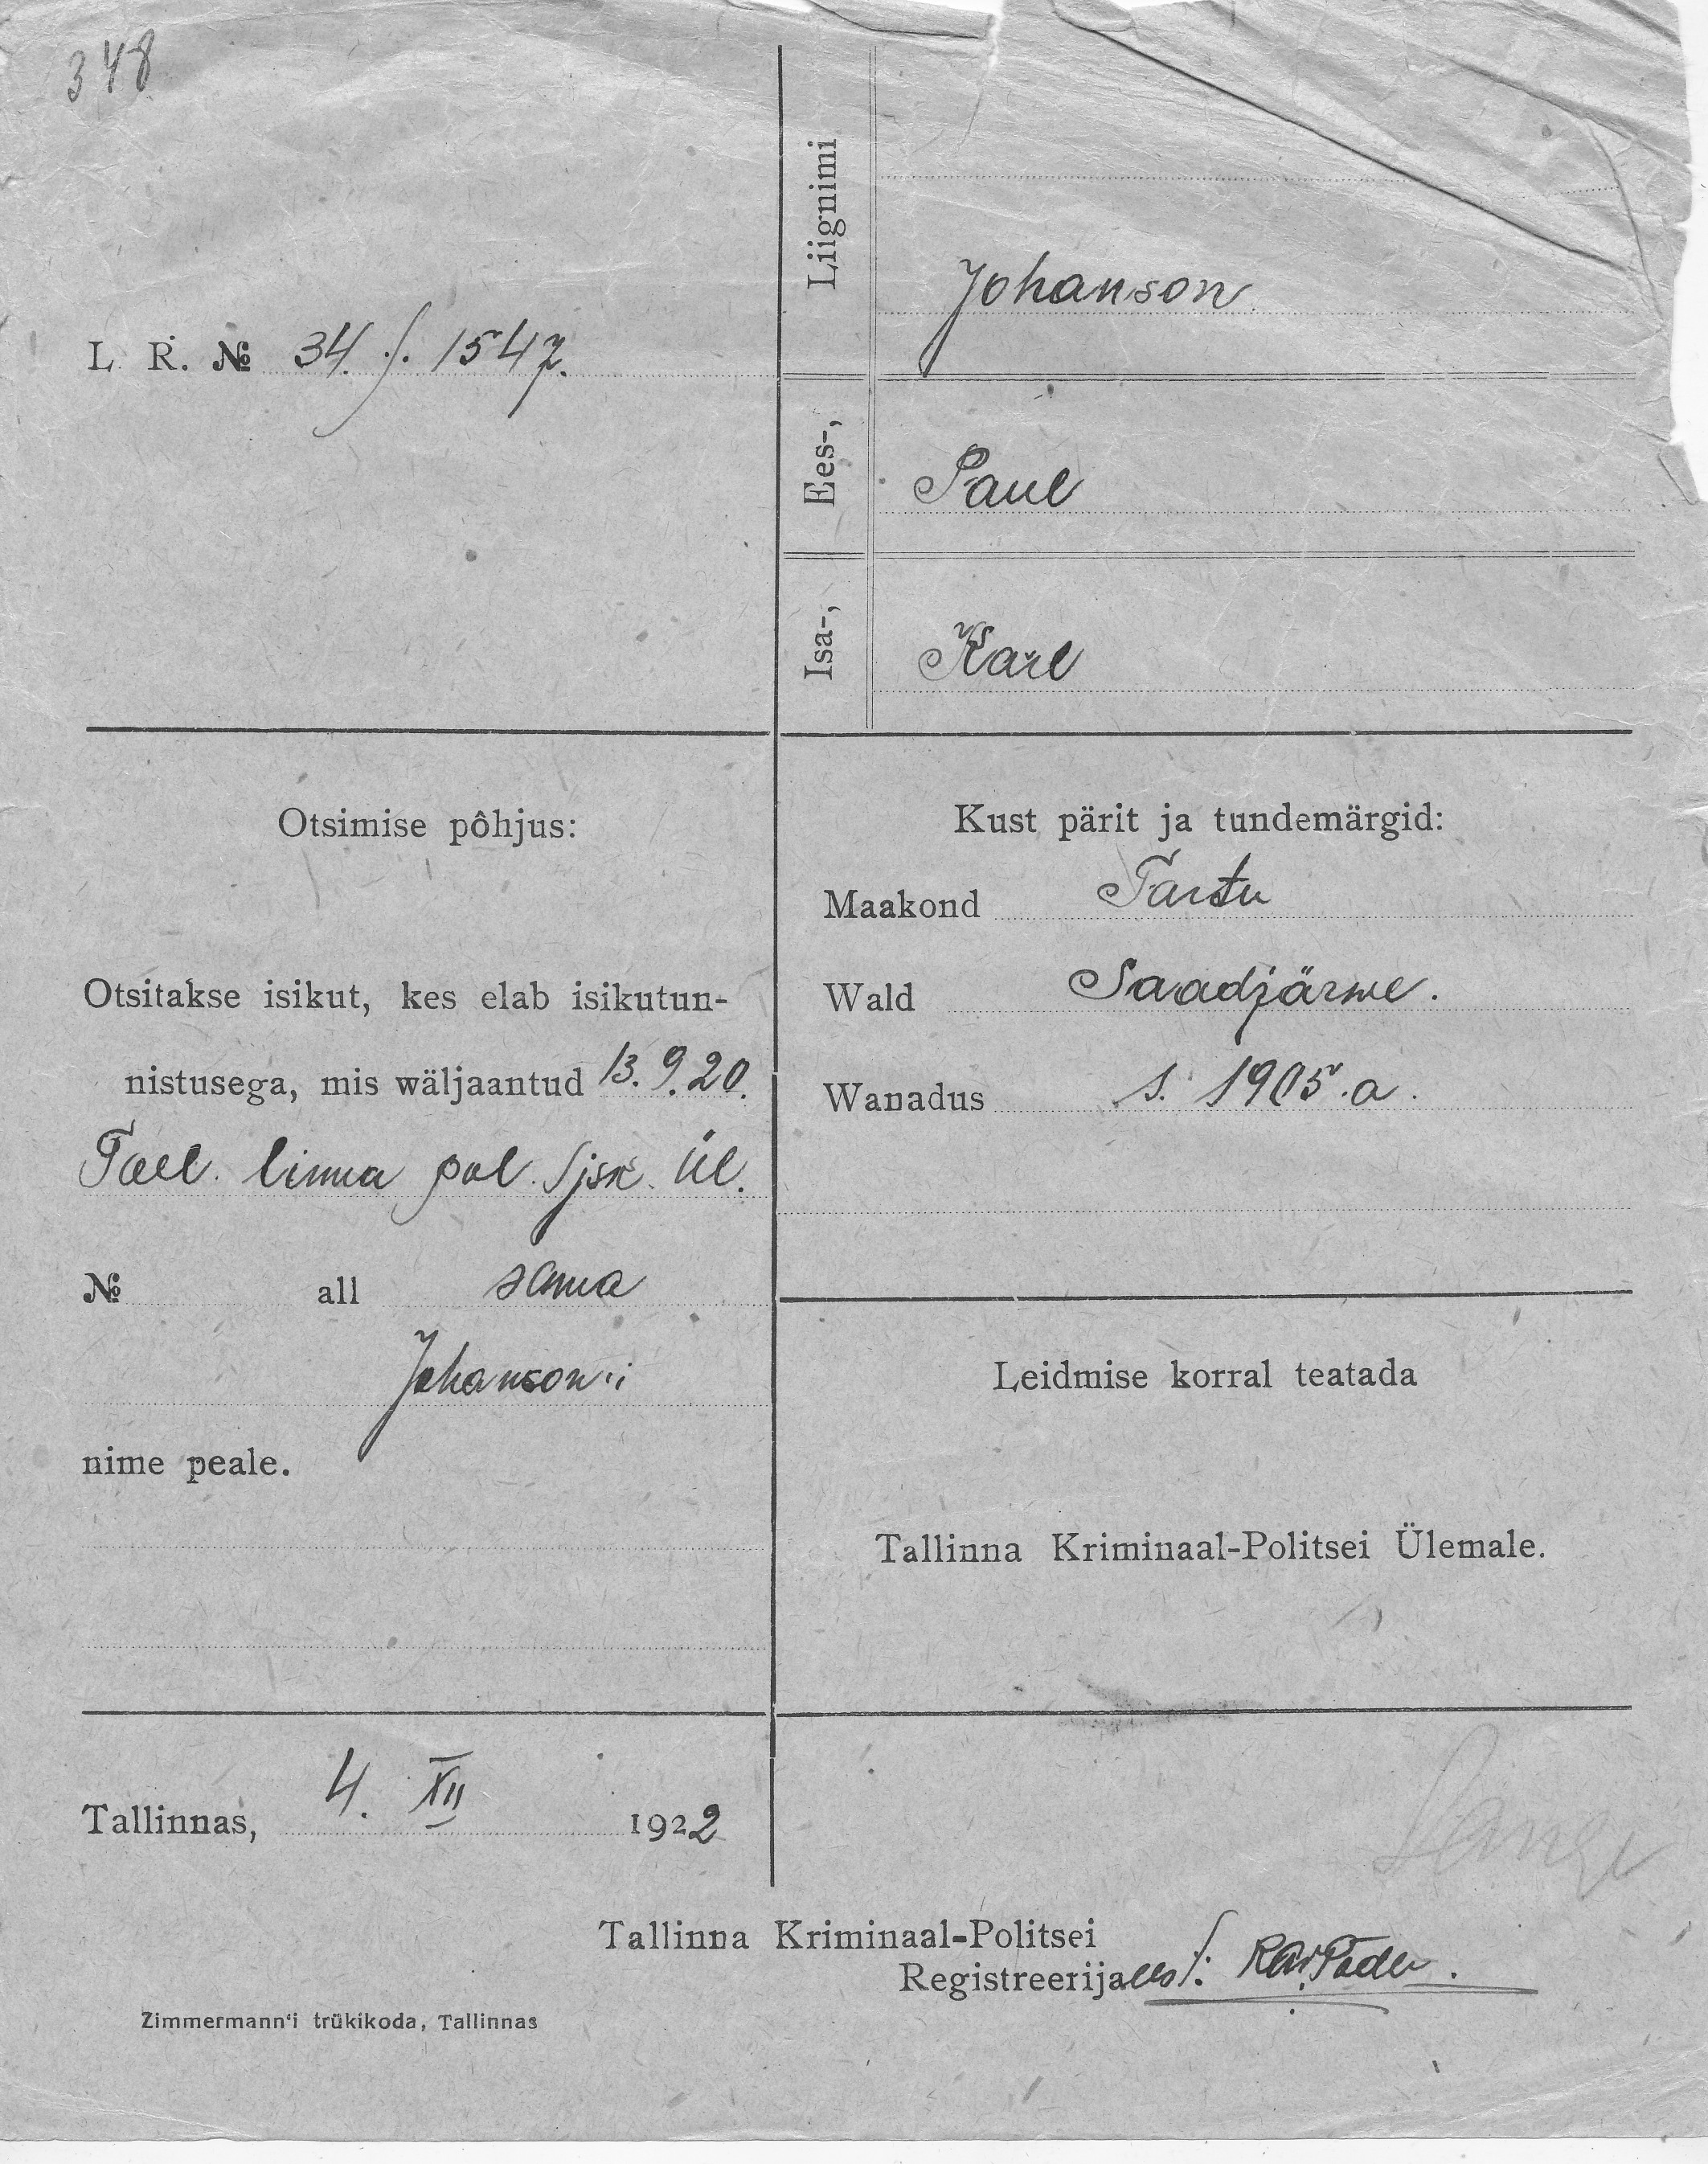 348
L. R. № 34. /. 1547.
Liignimi
Johanson
Ees-,
Paul
Isa-,
Karl
Otsimise põhjus:
Otsitakse isikut, kes elab isikutun-
nistusega, mis wäljaantud 13.9.20.
Tall. linna pol. Ijsk. ül.
№ all sama
Johanson'i
nime peale.
Kust pärit ja tundemärgid:
Maakond Tartu
Wald Saadjärwe.
Wanadus s. 1905.a.
Leidmise korral teatada
Tallinna Kriminaal-Politsei Ülemale.
Tallinnas, 4. XII 1922
Tallinna Kriminaal-Politsei
Registreerija
Zimmermann'i trükikoda, Tallinnas